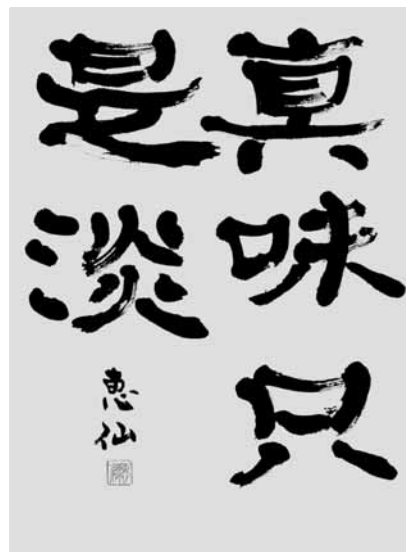 真味只
是淡
恵仙